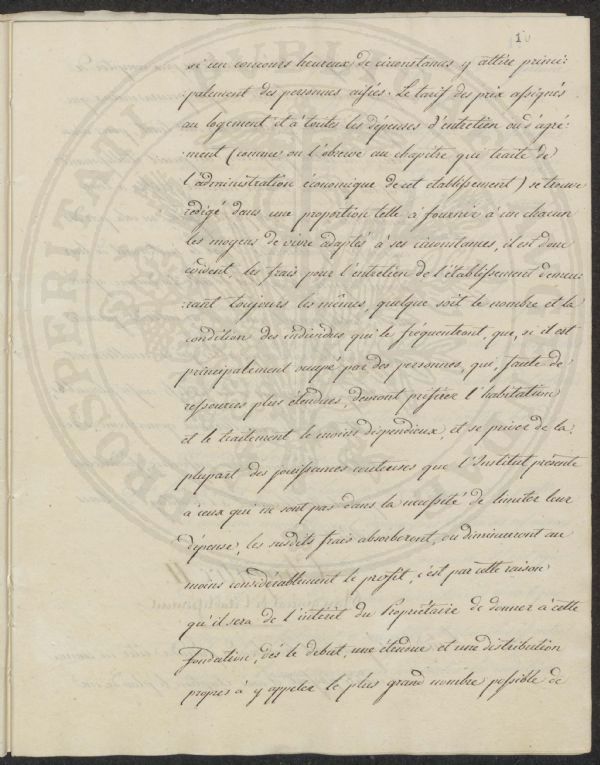 10
si un concours heureux de circonstances y attire princi:
:palement des personnes aisées. Le tarif des prix assignés
au logement et à toutes les dépenses d'entretien ou d'agré:
:ment (comme on l'observe au chapitre qui traite de
l'administration économique de cet établissement) se trouve
rédigé dans une proportion telle à fournir à un chacun
les moyens de vivre adaptés à ses circonstances, il est donc
évident, les frais pour l'entretien de l'établissement demeu:
:rant toujours les mêmes, quelque soit le nombre et la
condition des individus qui le fréquenteront, que, si il est
principalement occupé par des personnes, qui, faute de
ressources plus étendues, devront préférer l'habitation
et le traitement le moins dispendieux, et se priver de la
plupart des jouissances couteuses que l'Institut présente
à ceux qui ne sont pas dans la necessité de limiter leur
dépense, les susdits frais absorberont, ou diminueront au
moins considérablement le profit, c'est par cette raison
qu'il sera de l'intérêt du Propriétaire de donner à cette
Fondation, dès le debut, une étendue et une distribution
propres à y appeler le plus grand nombre possible de
PROSPERITATI PUBLICAE